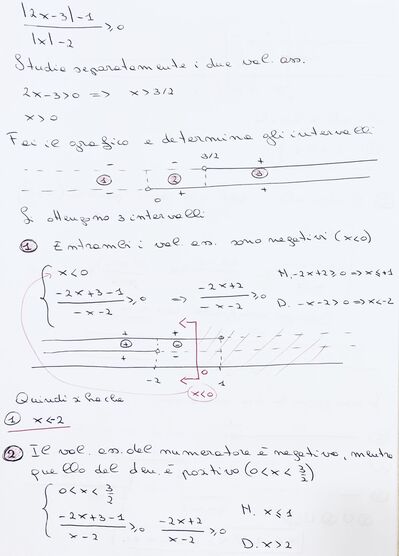 |2x-3|-1 / |x|-2 ≥0
Studia separatamente i due val. ass.
2x-3>0 => x>3/2
x>0
Fai il grafico e determina gli intervalli
3/2
- - +
1 2 3
- 0 + +
Si ottengono 3 intervalli
1 Entrambi i val. ass. sono negativi (x<0)
x<0
-2x+3-1 / -x-2 ≥0 => -2x+2 / -x-2 ≥0
N. -2x+2≥0 => x≤+1
D. -x-2>0 => x<-2
+ + -
+ -
-2 0 1
x<0
Quindi si ha che
1 x<-2
2 Il val. ass. del numeratore è negativo, mentre
quello del den. è positivo (0<x<3/2)
0<x<3/2
-2x+3-1 / x-2 ≥0 -2x+2 / x-2 ≥0
N. x≤1
D. x>2